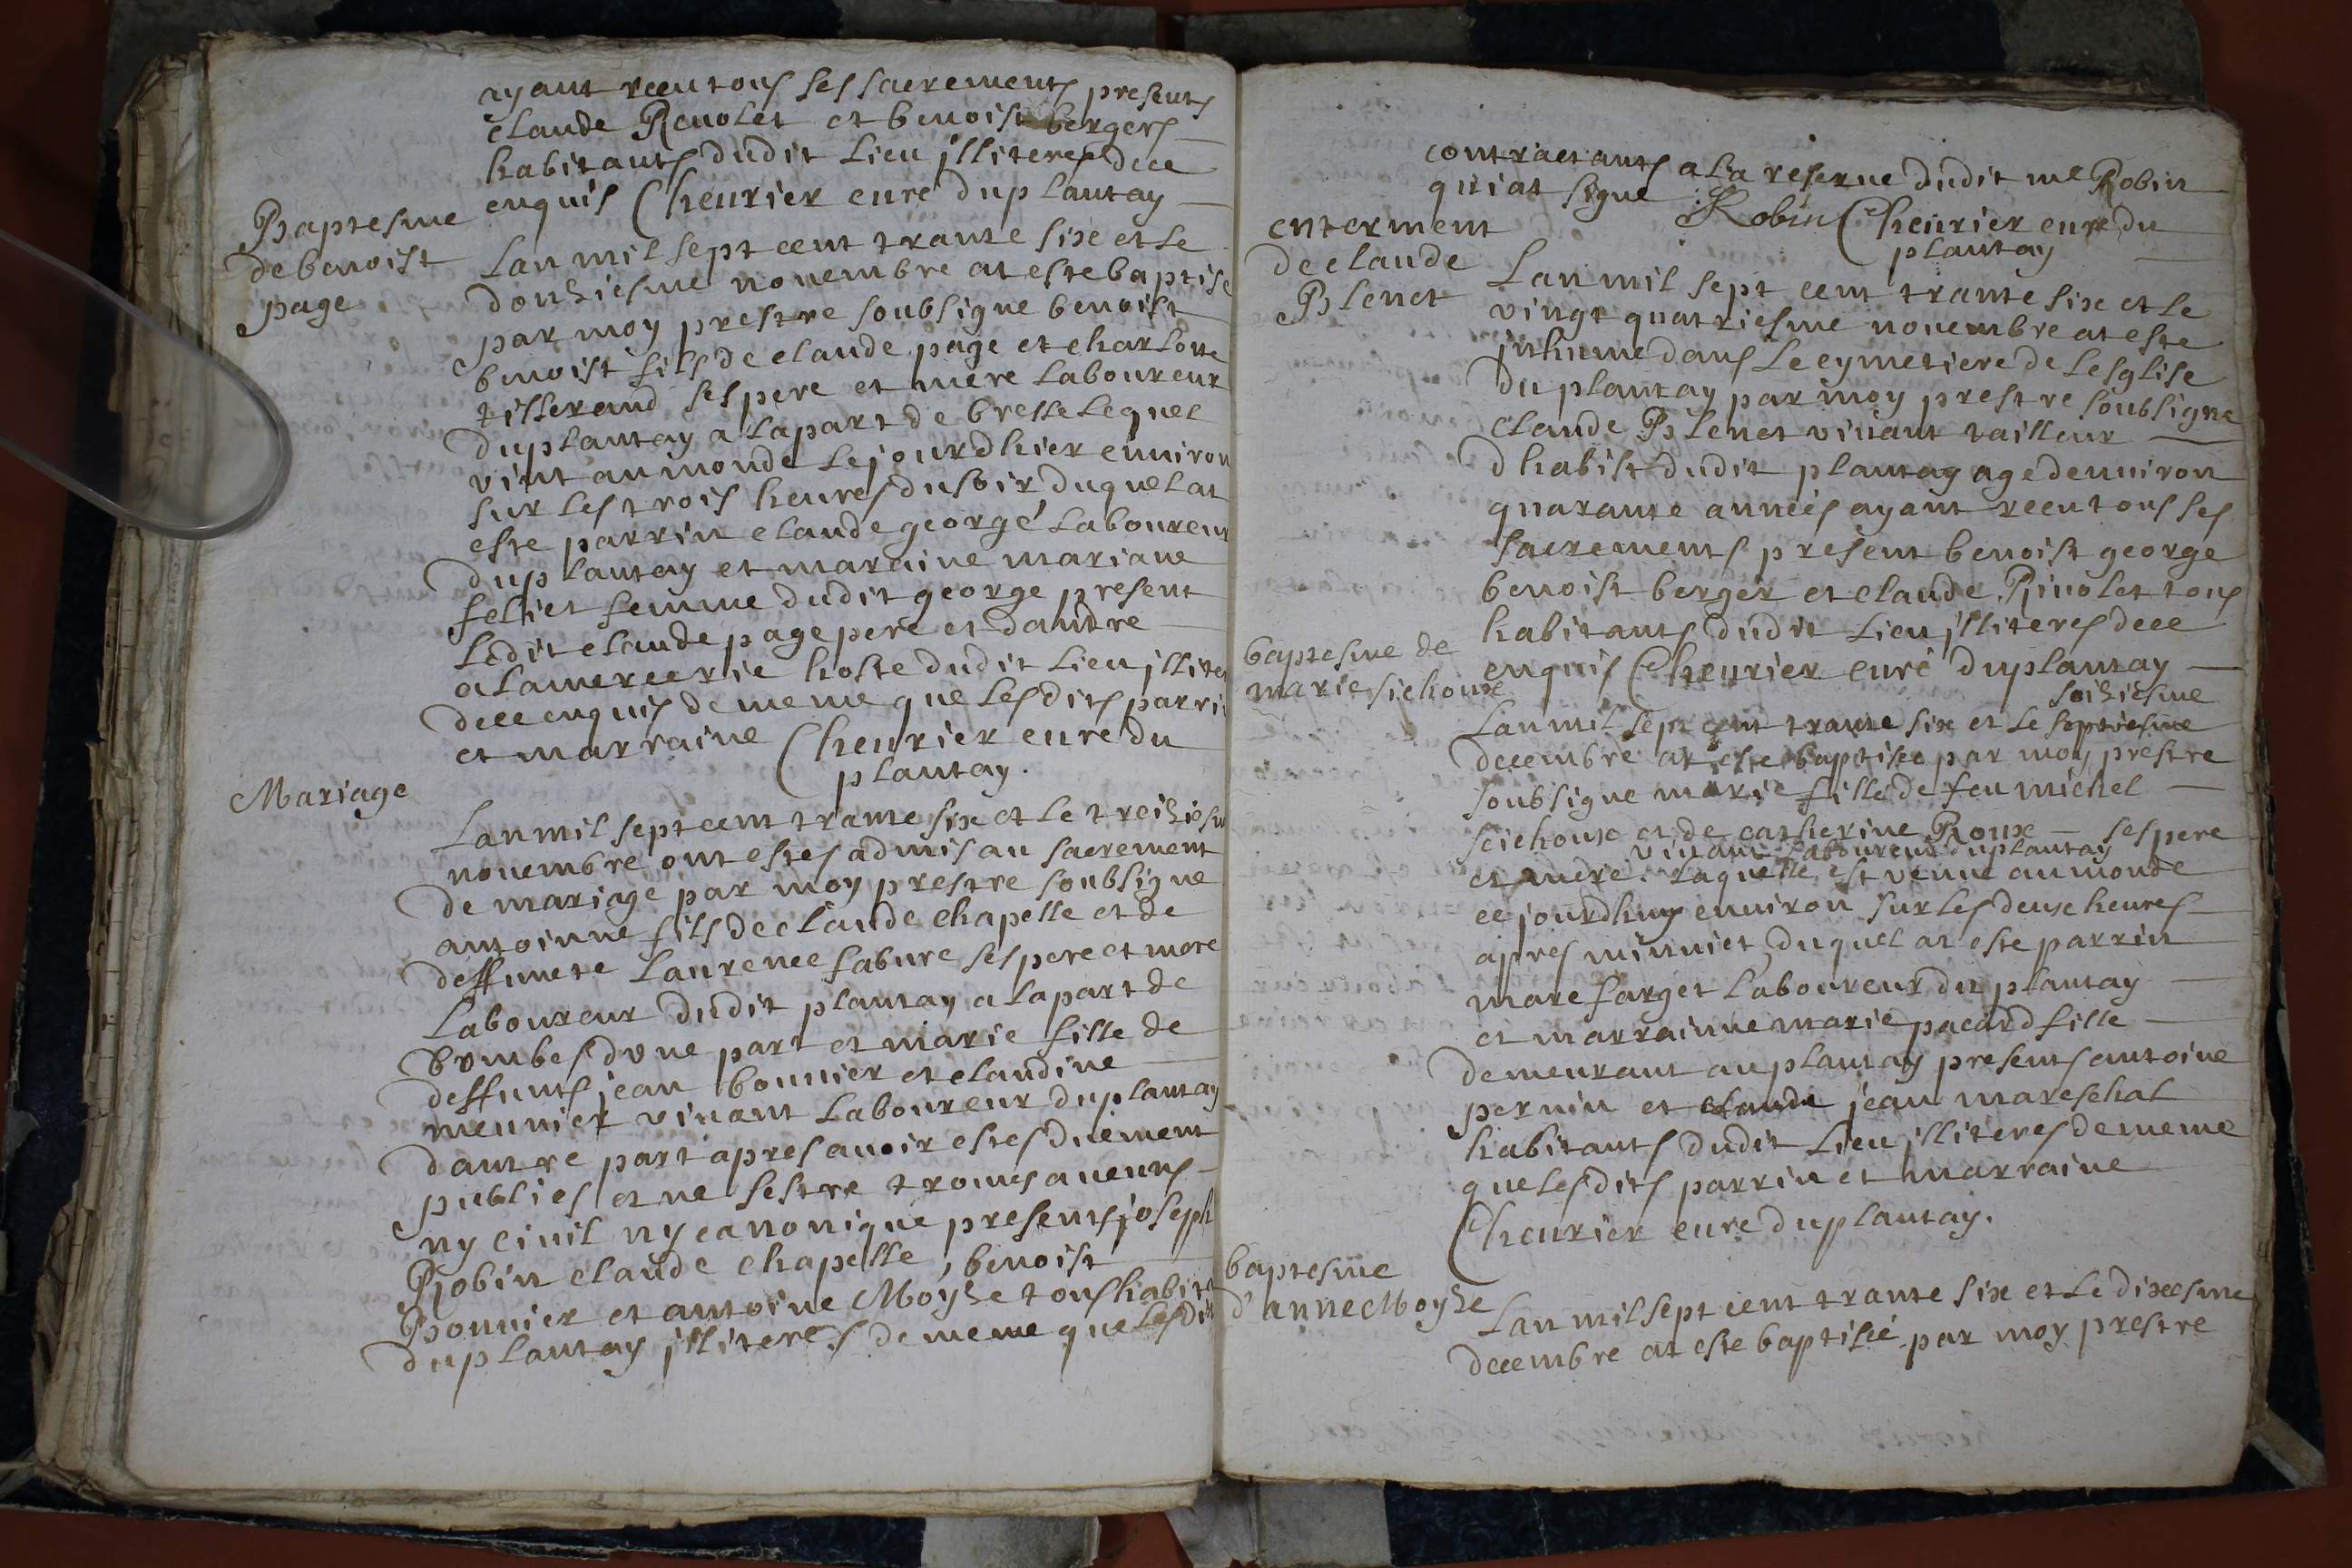 ayant receu tous ses sacrements presents
claude Revolet et benoist bergers
habitants dudit lieu jlliteres de ce
enquis Cheurier curé du plantay
Baptesme
de benoist
page
Lan mil sept cent trante six et le
donziesme nouembre at este baptise
par moy prestre soubsigne benoist
benoist fils de claude page et charlotte
tisserand ses pere et mere laboureur
du plantay a la part de bresse lequel
vint au monde le jourdhier enuiron
sur les trois heures du soir duquel at
este parrin claude george laboureur
du plantay et maraine mariane
femme dudit george present
ledit claude page pere et dandre
alamercerie hoste dudit lieu jlliter
de ce enquis de meme que lesdits parri
et marraine Cheurier curé du
plantay.
Mariage
Lan mil sept cent trante six et le treiziesm
nouembre ont estes admis au sacrement
de mariage par moy prestre soubsigne
antoinne fils de claude chapelle et de
deffuncte laurence fabure ses pere et mere
laboureur dudit plantay a la part de
Dombes dune part et marie fille de
deffunts jean bonnier et claudine
meunier viuant laboureur du plantay
dautre part apres auoir estes duement
publies et ne sestre trouues aucuns
ny ciuil ny canonique presents joseph
Robin claude chapelle, benoist
Bonnier et antoine Moyze tous habita
du plantay jlliteres de meme que lesdit
contractants a la reserue dudit me Robin
qui at signe Robin Cheurier curé du
plantay
enterment
de claude
Plenet
Lan mil sept cent trante six et le
vingt quatriesme nouembre at este
jnhume dans le cymetiere de lesglise
du plantay par moy prestre soubsigne
claude Plenet viuant tailleur
dhabist dudit plantay age denuiron
quarante années ayant receu tous ses
sacrements present benoist george
benoist berger et claude Riuolet tous
habitants dudit lieu jlliteres de ce
enquis Cheurier curé du plantay
baptesme de
marie sichoux
soiziesme
Lan mil sept cent trante six et le septiesme
decembre at este baptisée par moy prestre
soubsigne marie fille de feu michel
scichoux et de catherine Roux ses pere
viuant laboureur du plantay
et mere. laquelle est venue au monde
ce jourdhuy enuiron sur les deux heures
apres minuict, duquel at este parrin
marc farget laboureur du plantay
et marrainne marie pacard fille
demeurant au plantay presents antoine
pernin et claude jean mareschal
habitants dudit lieu jlliteres de meme
que lesdits parrin et marraine
Cheurier curé du plantay.
baptesme
d'anne Moyze
Lan mil sept cent trante six et le dixesme
decembre at este baptisée par moy prestre